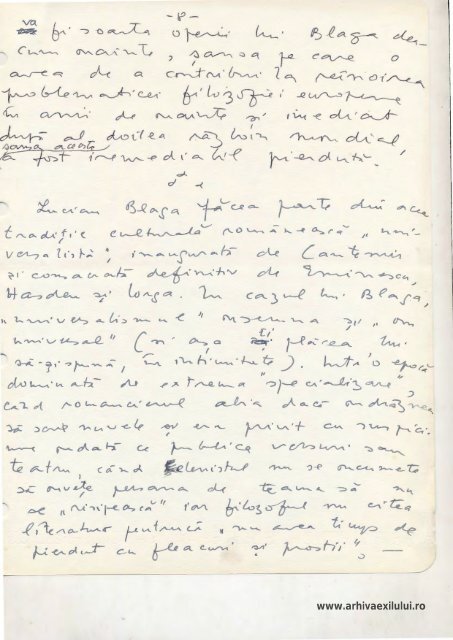 -8-
va
fi soarta operii lui Blaga de a-
cum înainte, șansa pe care o
avea de a contribui la reînoirea
problematicei filozofiei europene
în anii de înainte și imediat
după al doilea război mondial,
șansa aceasta
a fost iremediabil pierdută.
Lucian Blaga făcea parte din acea
tradiție culturală românească „uni-
versalistă”, inaugurată de Cantemir
și consacrată definitiv de Eminescu,
Hasdeu și Iorga. În cazul lui Blaga,
„universalismul” însemna și „om
universal” (și așa îi plăcea lui
să-și spună, în intimitate). Într'o epocă
dominată de extrema „specializare”,
când romancierul abia dacă îndrăznea
să scrie nuvele și era privit cu suspici-
une îndată ce publica versuri sau
teatru, când elenistul nu se încumeta
să învețe persana de teamă să nu
se „risipească” iar filozoful nu citea
literatură pentrucă „nu avea timp de
pierdut cu fleacuri și prostii”, —
www.arhivaexilului.ro